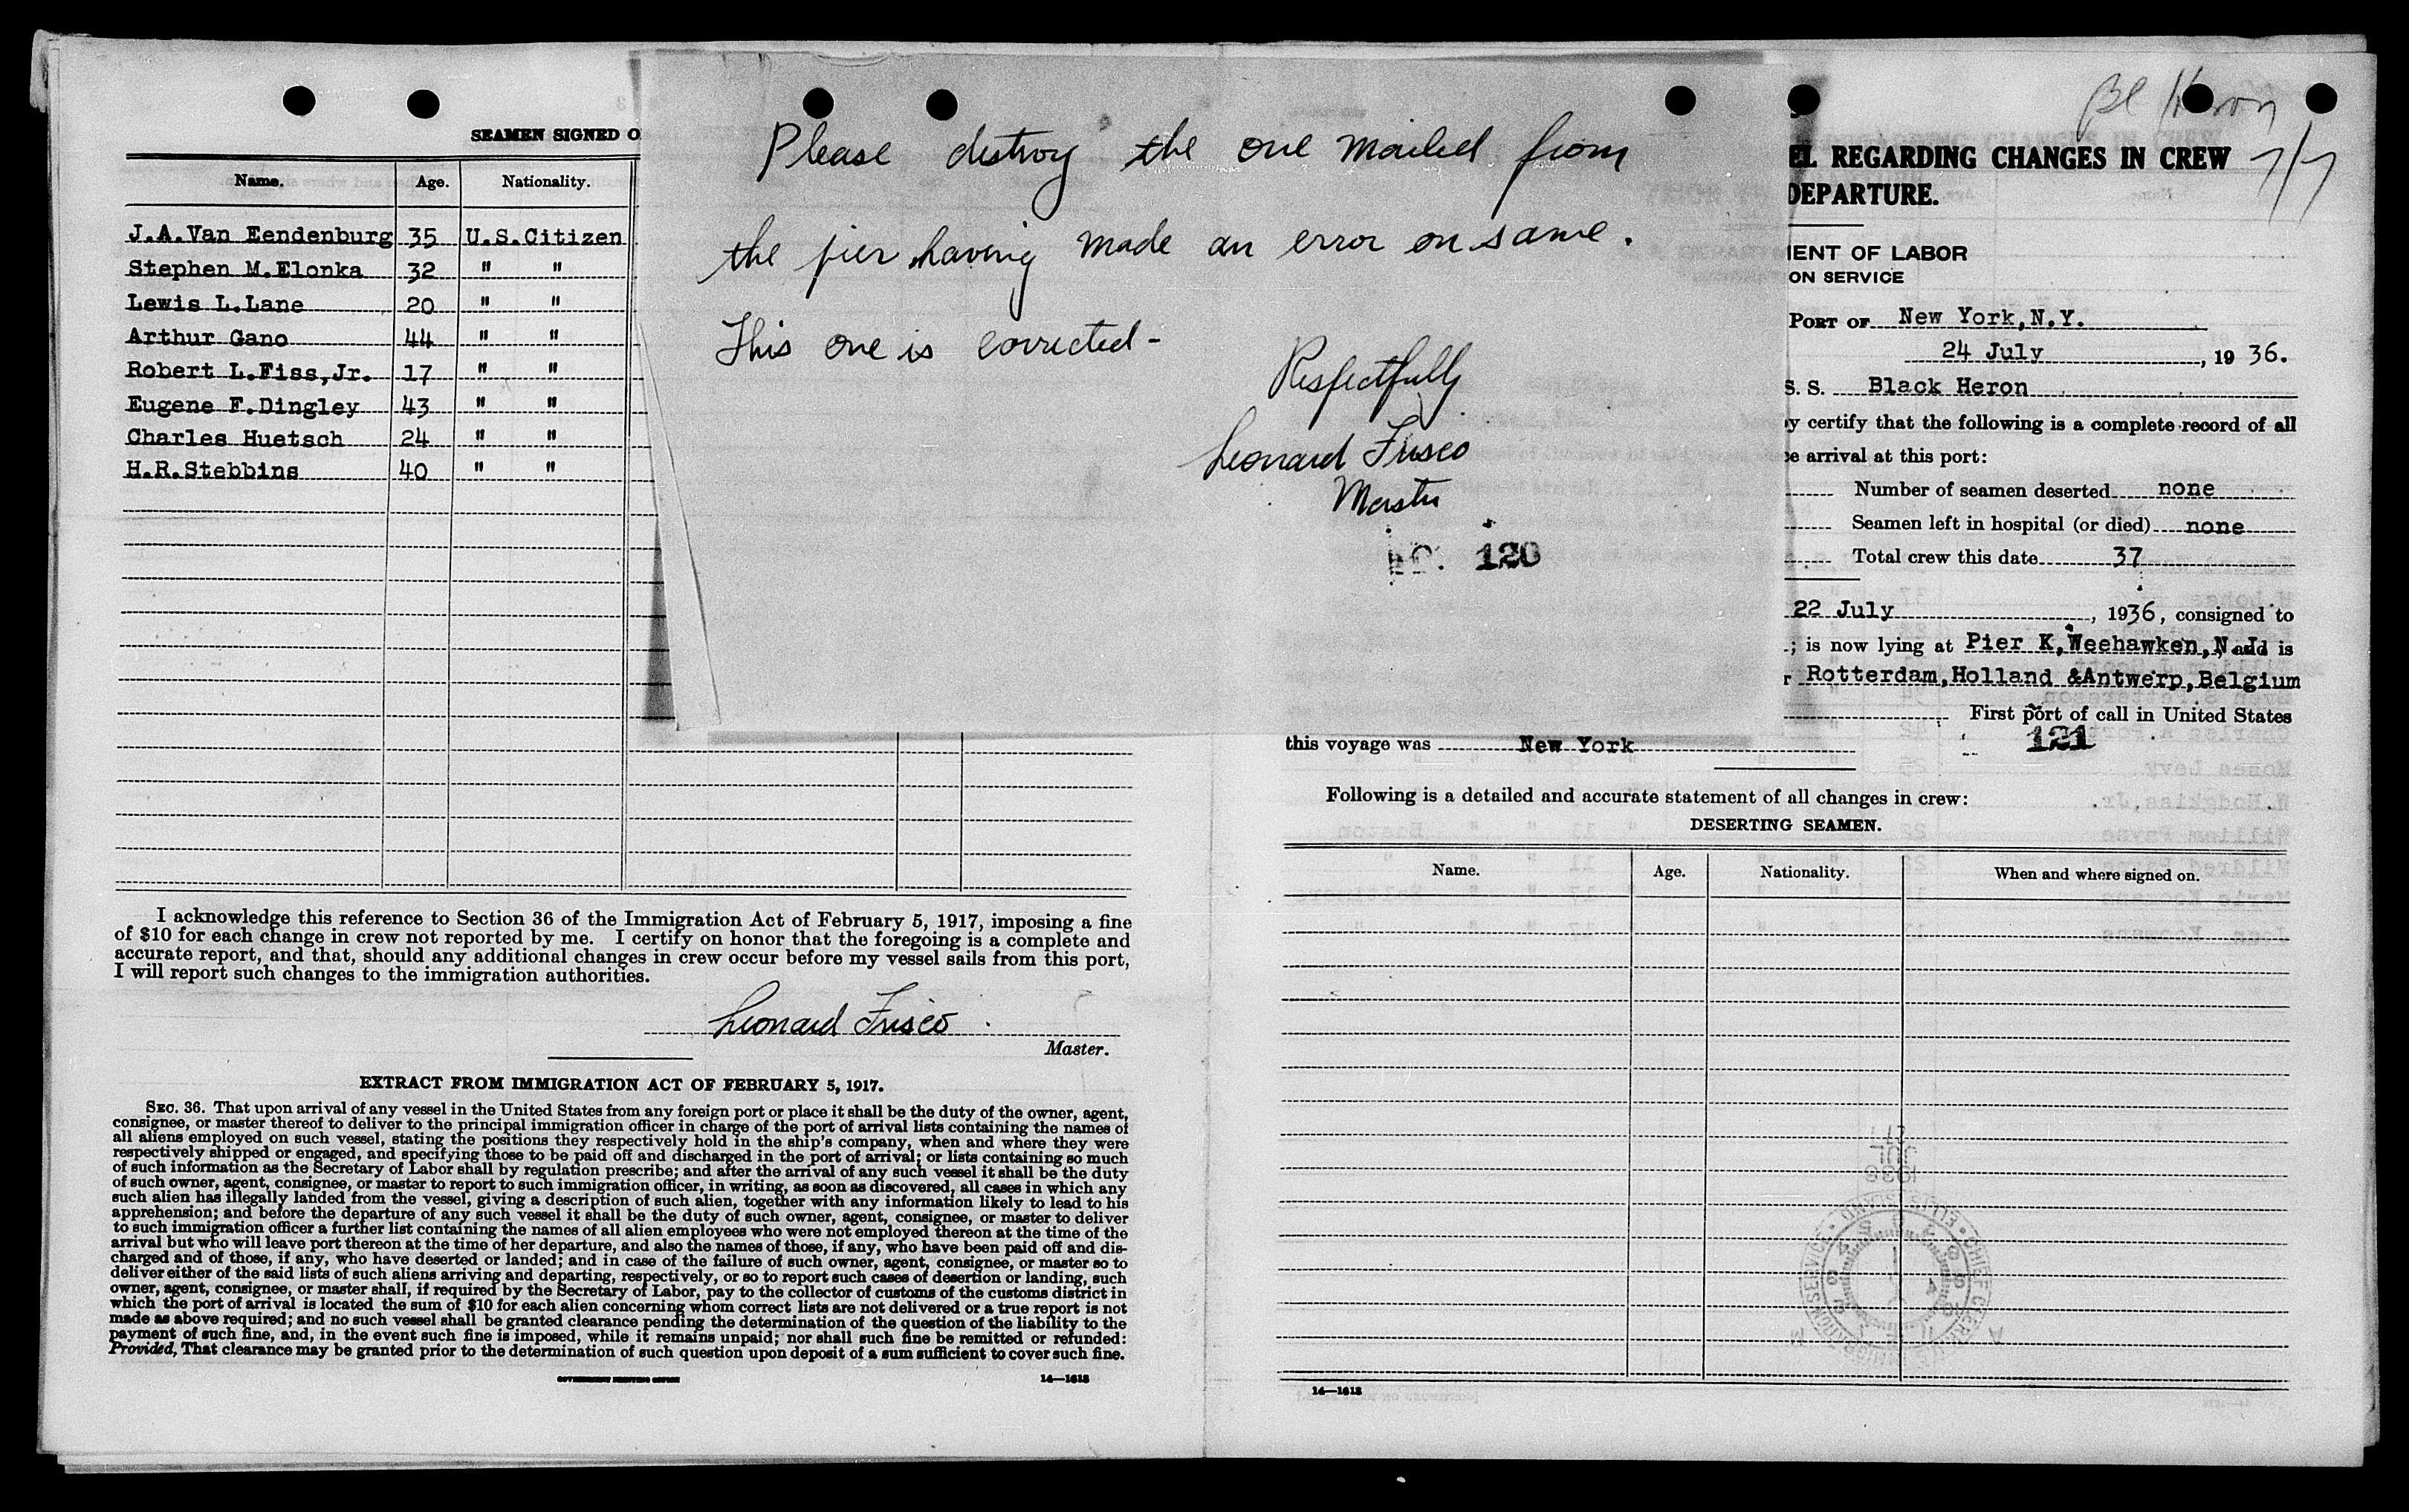 SEAMEN SIGNED O
Name. Age. Nationality.
J.A.Van Eendenburg 35 U.S.Citizen
Stephen M.Elonka 32 " "
Lewis L.Lane 20 " "
Arthur Gano 44 " "
Robert L.Fiss,Jr. 17 " "
Eugene F.Dingley 43 " "
Charles Huetsch 24 " "
H.R.Stebbins 40 " "
I acknowledge this reference to Section 36 of the Immigration Act of February 5, 1917, imposing a fine
of $10 for each change in crew not reported by me. I certify on honor that the foregoing is a complete and
accurate report, and that, should any additional changes in crew occur before my vessel sails from this port,
I will report such changes to the immigration authorities.
Leonard Fusco
Master.
EXTRACT FROM IMMIGRATION ACT OF FEBRUARY 5, 1917.
SEC. 36. That upon arrival of any vessel in the United States from any foreign port or place it shall be the duty of the owner, agent,
consignee, or master thereof to deliver to the principal immigration officer in charge of the port of arrival lists containing the names of
all aliens employed on such vessel, stating the positions they respectively hold in the ship's company, when and where they were
respectively shipped or engaged, and specifying those to be paid off and discharged in the port of arrival; or lists containing so much
of such information as the Secretary of Labor shall by regulation prescribe; and after the arrival of any such vessel it shall be the duty
of such owner, agent, consignee, or master to report to such immigration officer, in writing, as soon as discovered, all cases in which any
such alien has illegally landed from the vessel, giving a description of such alien, together with any information likely to lead to his
apprehension; and before the departure of any such vessel it shall be the duty of such owner, agent, consignee, or master to deliver
to such immigration officer a further list containing the names of all alien employees who were not employed thereon at the time of the
arrival but who will leave port thereon at the time of her departure, and also the names of those, if any, who have been paid off and dis-
charged and of those, if any, who have deserted or landed; and in case of the failure of such owner, agent, consignee, or master so to
deliver either of the said lists of such aliens arriving and departing, respectively, or so to report such cases of desertion or landing, such
owner, agent, consignee, or master shall, if required by the Secretary of Labor, pay to the collector of customs of the customs district in
which the port of arrival is located the sum of $10 for each alien concerning whom correct lists are not delivered or a true report is not
made as above required; and no such vessel shall be granted clearance pending the determination of the question of the liability to the
payment of such fine, and, in the event such fine is imposed, while it remains unpaid; nor shall such fine be remitted or refunded:
Provided, That clearance may be granted prior to the determination of such question upon deposit of a sum sufficient to cover such fine.
GOVERNMENT PRINTING OFFICE 14—1618
Please destroy the one mailed from
the pier having made an error on same.
This one is corrected -
Respectfully
Leonard Fusco
Master
120
Bl Heron
7/7
EL REGARDING CHANGES IN CREW
DEPARTURE.
MENT OF LABOR
ON SERVICE
PORT OF New York,N.Y.
24 July, 19 36.
S. S. Black Heron
y certify that the following is a complete record of all
e arrival at this port:
Number of seamen deserted none
Seamen left in hospital (or died) none
Total crew this date 37
22 July, 1936, consigned to
; is now lying at Pier K,Weehawken,N.J. and is
r Rotterdam,Holland &Antwerp,Belgium
First port of call in United States
121
this voyage was New York
Following is a detailed and accurate statement of all changes in crew:
DESERTING SEAMEN.
Name. Age. Nationality. When and where signed on.
14—1618